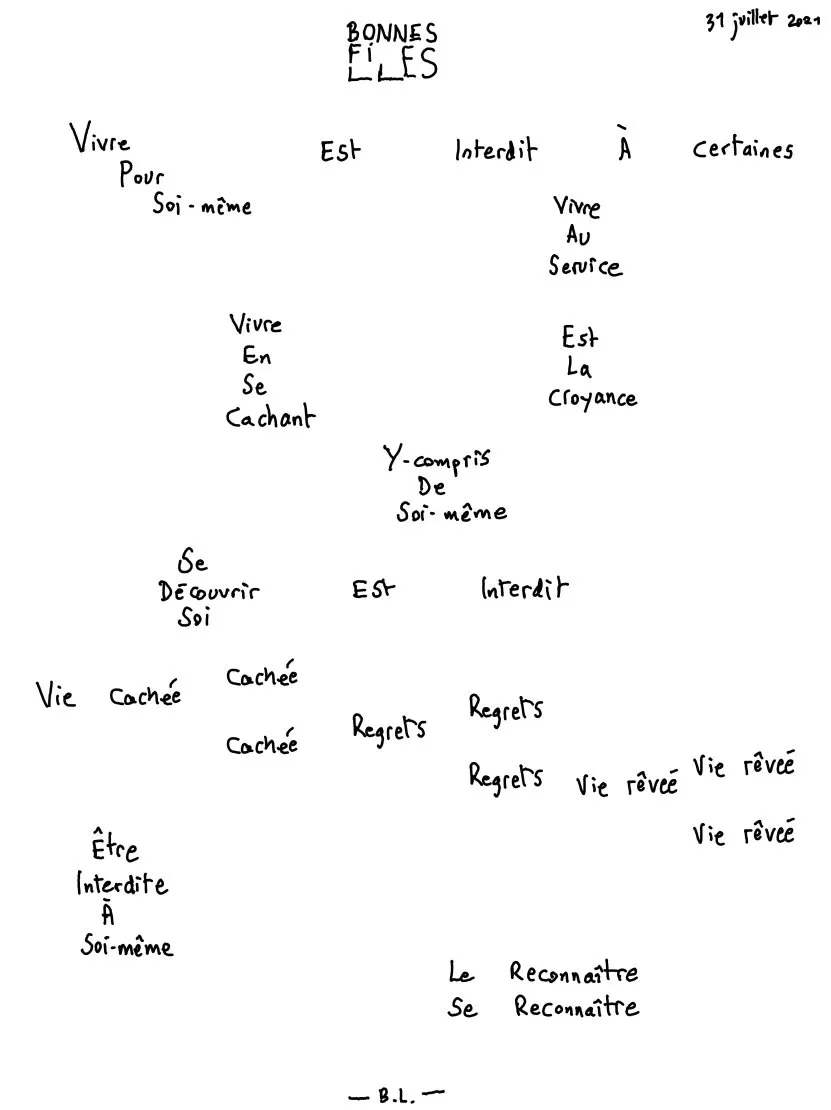 31 juillet 2021
BONNES
FILLES
Vivre Est Interdit À Certaines
Pour
Soi-même
Vivre
Au
Service
Vivre
En
Se
Cachant
Est
La
Croyance
Y-compris
De
Soi-même
Se
Découvrir Est Interdit
Soi
Cachée
Vie Cachée
Cachée
Regrets
Regrets
Regrets
Vie rêvée
Vie rêvée
Vie rêvée
Être
Interdite
À
Soi-même
Le Reconnaître
Se Reconnaître
— B.L. —